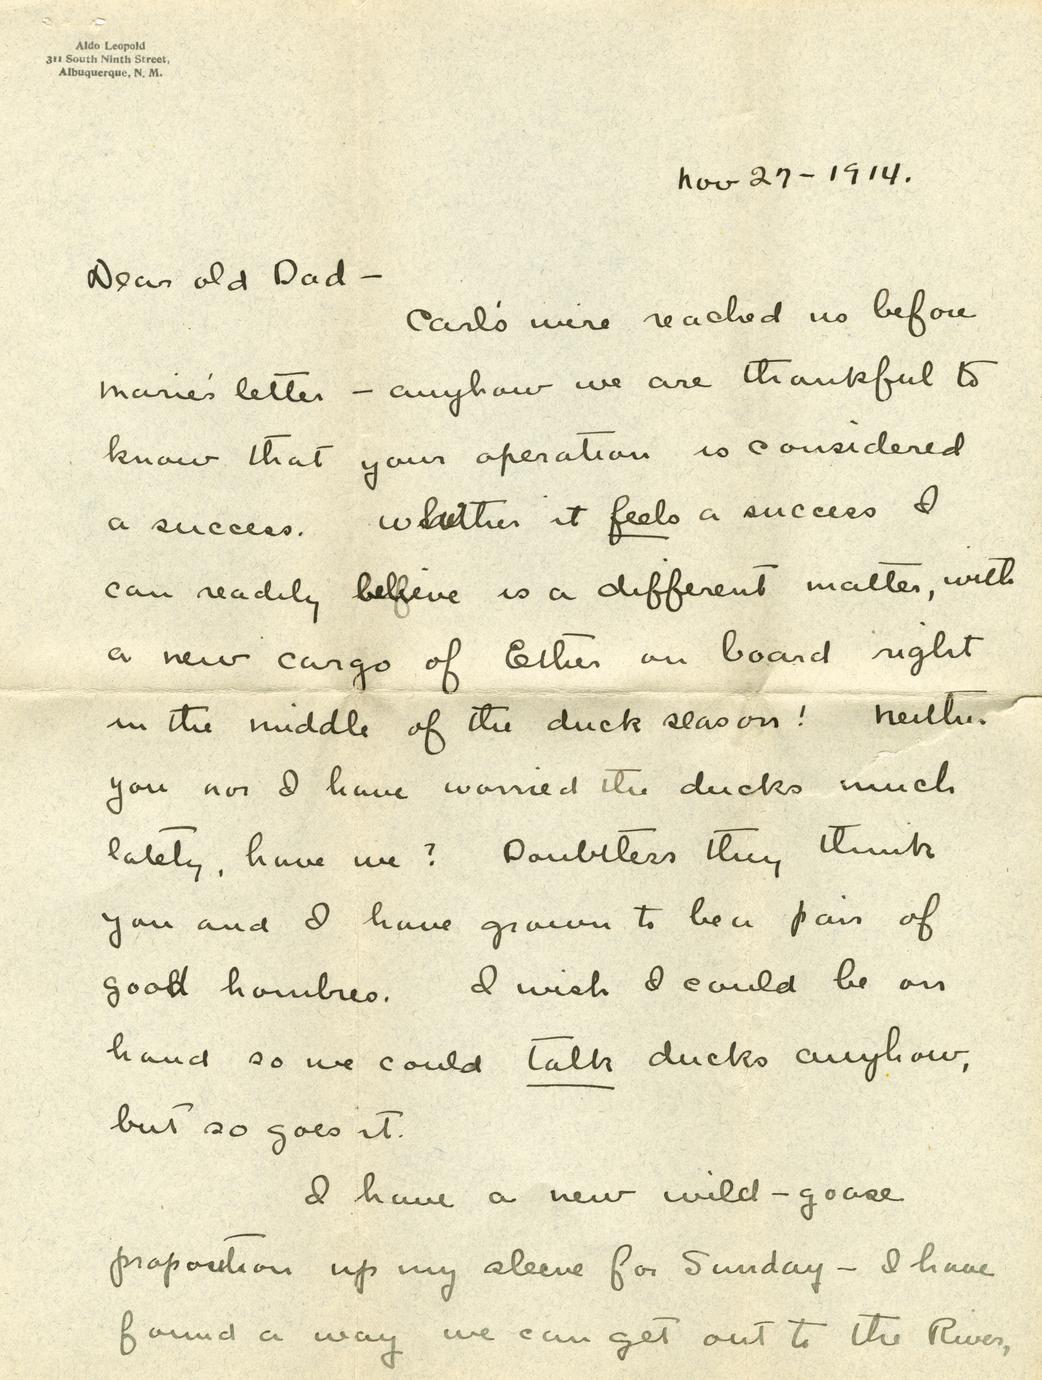 Aldo Leopold
311 South Ninth Street,
Albuquerque, N. M.
Nov 27 - 1914.
Dear old Dad -
Carl's wire reached us before
Marie's letter - anyhow we are thankful to
know that your operation is considered
a success. Whether it feels a success I
can readily believe is a different matter, with
a new cargo of Ether on board right
in the middle of the duck season! Neither
you nor I have worried the ducks much
lately, have we? Doubtless they think
you and I have grown to be a pair of
good hombres. I wish I could be on
hand so we could talk ducks anyhow,
but so goes it.
I have a new wild-goose
proposition up my sleeve for Sunday - I have
found a way we can get out to the River,